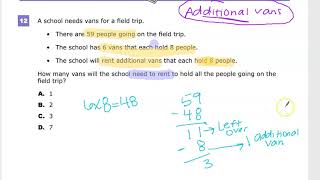 Additional vans
12 A school needs vans for a field trip.
• There are 59 people going on the field trip.
• The school has 6 vans that each hold 8 people.
• The school will rent additional vans that each hold 8 people.
How many vans will the school need to rent to hold all the people going on the
field trip?
A. 1
B. 2
C. 3
D. 7
6x8=48
59
- 48
11 → Left over
- 8 → 1 additional van
3